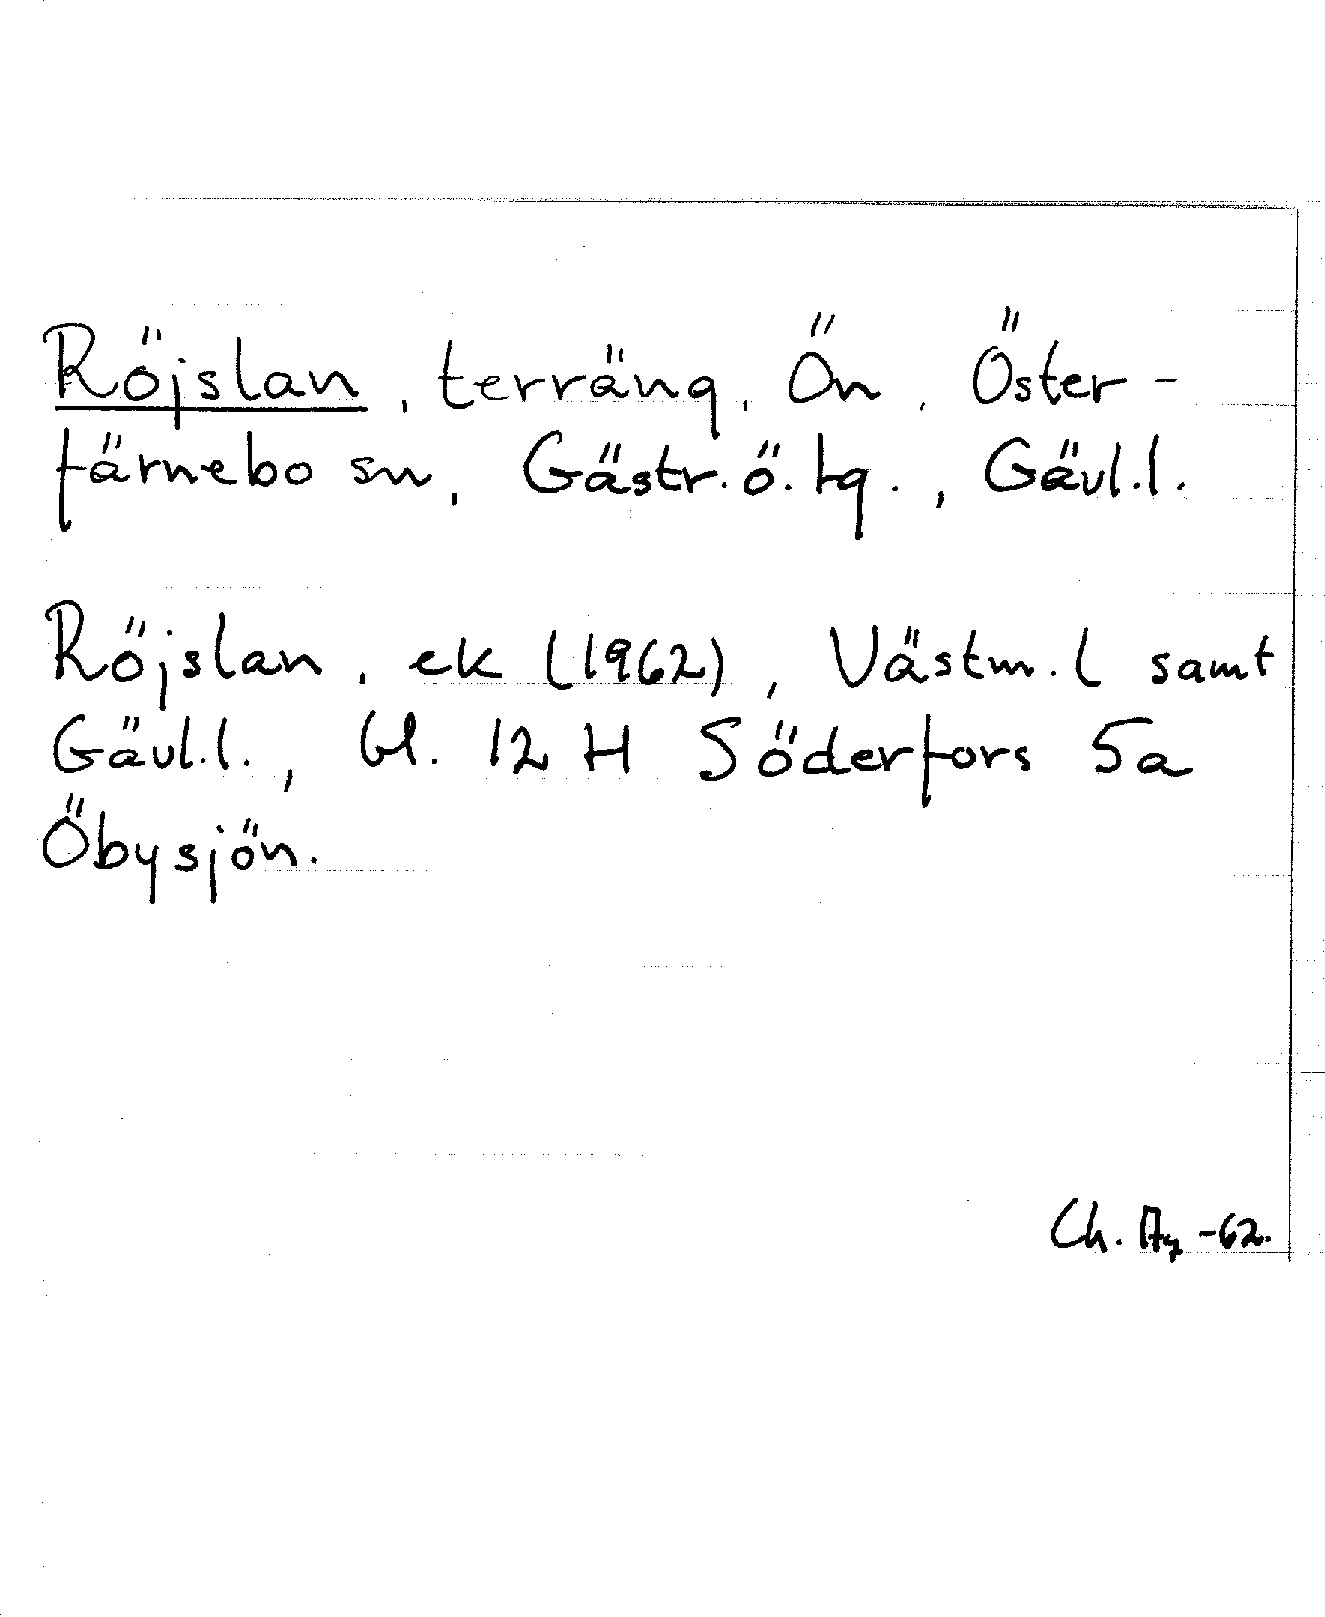 Röjslan, terräng, Ön, Öster-
färnebo sn, Gästr. ö. tg., Gävl.l.
Röjslan, ek (1962), Västm. l samt
Gävl.l., bl. 12 H Söderfors 5a
Öbysjön.
Ch. Ay -62.